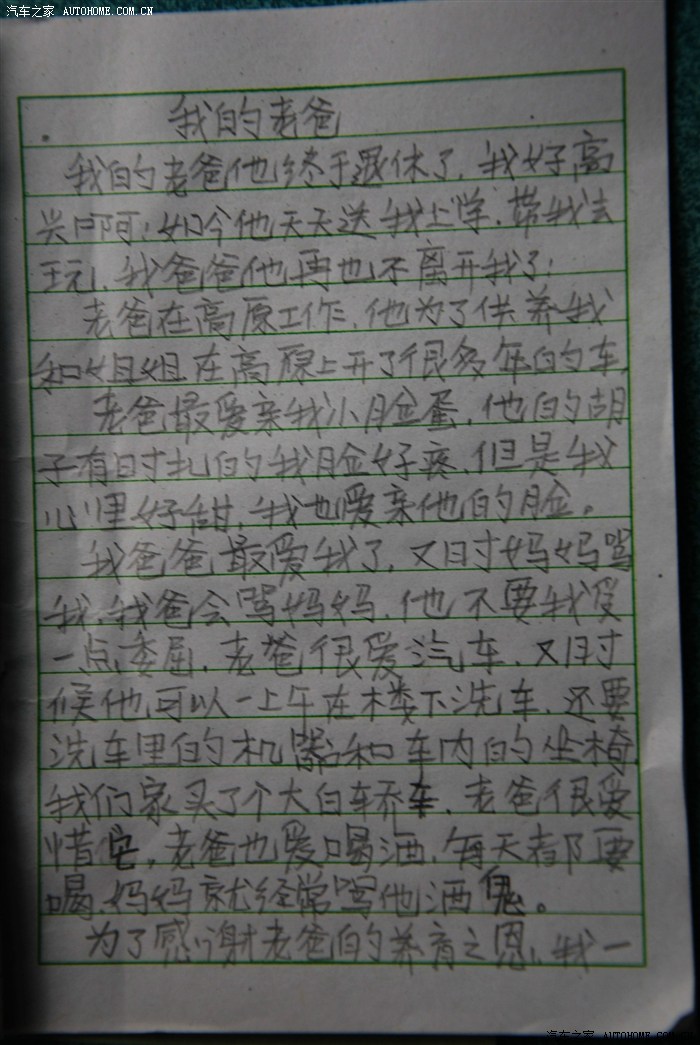 汽车之家 AUTOHOME.COM.CN
我的老爸
我的老爸他终于退休了,我好高
兴啊!如今他天天送我上学.带我去
玩.我爸爸他再也不离开我了!
老爸在高原工作.他为了供养我
和姐姐在高原上开了很多年的车.
老爸最爱亲我小脸蛋.他的胡
子有时扎的我脸好疼.但是我
心里好甜.我也爱亲他的脸。
我爸爸最爱我了.又时妈妈骂
我.我爸会骂妈妈.他不要我受
一点委屈.老爸很爱汽车.又时
候他可以一上午在楼下洗车.还要
洗车里的机器和车内的坐椅.
我们家买了个大白车轿车.老爸很爱
惜它.老爸也爱喝酒.每天都要
喝.妈妈就经常骂他酒鬼。
为了感谢老爸的养育之恩.我一
汽车之家 AUTOHOME.COM.CN